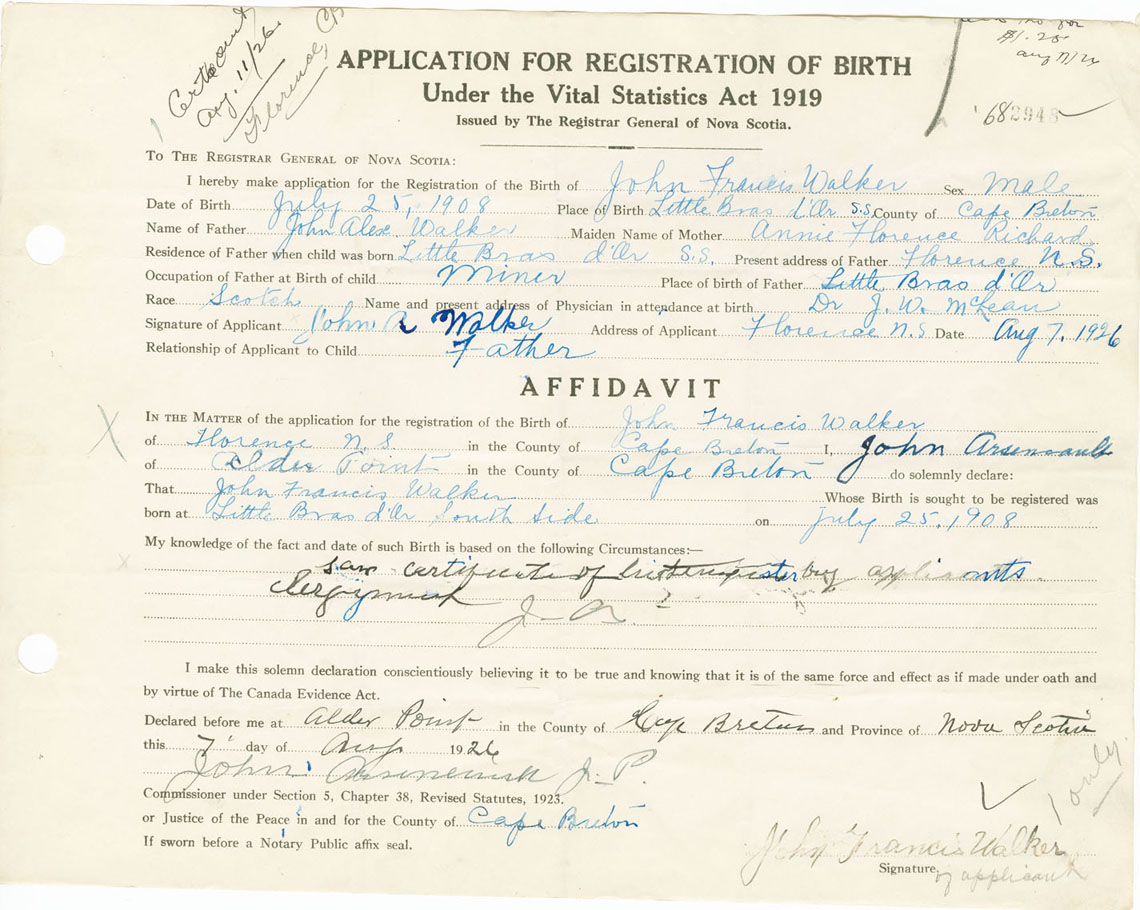 Aug. 11/26
Florence, CB
$1.25
APPLICATION FOR REGISTRATION OF BIRTH
Under the Vital Statistics Act 1919
Issued by The Registrar General of Nova Scotia.
682948
TO THE REGISTRAR GENERAL OF NOVA SCOTIA:
I hereby make application for the Registration of the Birth of John Francis Walker Sex Male
Date of Birth July 25, 1908 Place of Birth Little Bras d'Or S.S. County of Cape Breton
Name of Father John Alex. Walker Maiden Name of Mother Annie Florence Richard
Residence of Father when child was born Little Bras d'Or S.S. Present address of Father Florence N.S.
Occupation of Father at Birth of child Miner Place of birth of Father Little Bras d'Or
Race Scotch Name and present address of Physician in attendance at birth Dr J. W. McLean
Signature of Applicant John A Walker Address of Applicant Florence N.S. Date Aug 7, 1926
Relationship of Applicant to Child Father
AFFIDAVIT
IN THE MATTER of the application for the registration of the Birth of John Francis Walker
of Florence N.S in the County of Cape Breton I, John Arsenault
of Alder Point in the County of Cape Breton do solemnly declare:
That John Francis Walker Whose Birth is sought to be registered was
born at Little Bras d'Or South Side on July 25, 1908
My knowledge of the fact and date of such Birth is based on the following Circumstances:—
saw certificate of by applicants
J-A
I make this solemn declaration conscientiously believing it to be true and knowing that it is of the same force and effect as if made under oath and
by virtue of The Canada Evidence Act.
Declared before me at Alder Point in the County of Cape Breton and Province of Nova Scotia
this 7 day of Aug 1926
John J.P.
Commissioner under Section 5, Chapter 38, Revised Statutes, 1923.
or Justice of the Peace in and for the County of Cape Breton
If sworn before a Notary Public affix seal.
1 only
John Francis Walker
Signature of applicant